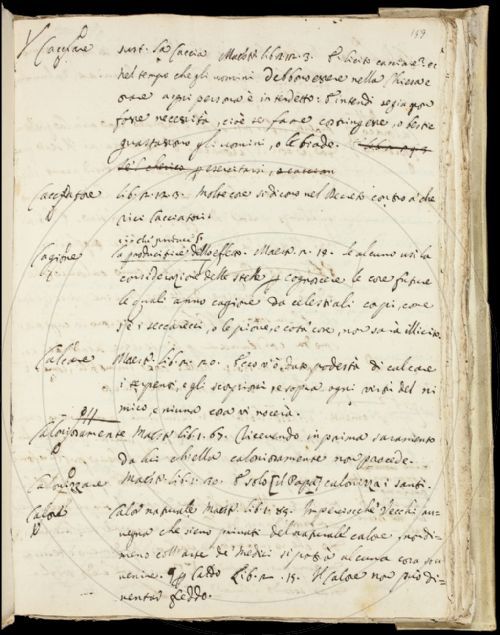 159
Cacciare
sust. la Caccia Maestr. lib. 2. 3. È licito cacciare? et
nel tempo che gli uomini debbono essere nella Chiesa e
orare a ogni persona è interdetto: s'intende se già non
fosse necessità, cioè se fame costringesse, o bestie
guastassono gli uomini, o le biade.
Cacciatore lib. 2. 3. Molte cose si dicono nel Decreto contro a' che
rici Cacciatori.
Cagione la produttiva dello effetto. Maestr. 2. 19. Se alcuno usi la
considerazione delle stelle p cognoscere le cose future
le quali anno cagione da celestiali corpi, come
se è seccareccio, o le piove, e cotai cose, non sarà illicito.
Calcare Maestr. lib. 2. 20. Ecco v'ò data podestà di calcare
i serpenti, e gli scorpioni, e sopra ogni virtù del ni
mico e niuna cosa vi nocerà.
Caloniosamente Maestr. lib. 1. 67. Ricevendo in prima saramento
da lui ch'ella caloniosamente non procede.
Calonizzare Maestr. lib. 1. E solo [il Papa] calonizza i santi.
Calore Calor naturale Maestr. lib. 1. 85. Imperciocchè i vecchi av-
vegna che sieno privati del naturale calore, non di-
meno coll'arte de' Medici si potrà alcuna cosa sov
venire. Lib. 2. 15. Il Calore non può di-
ventar freddo.